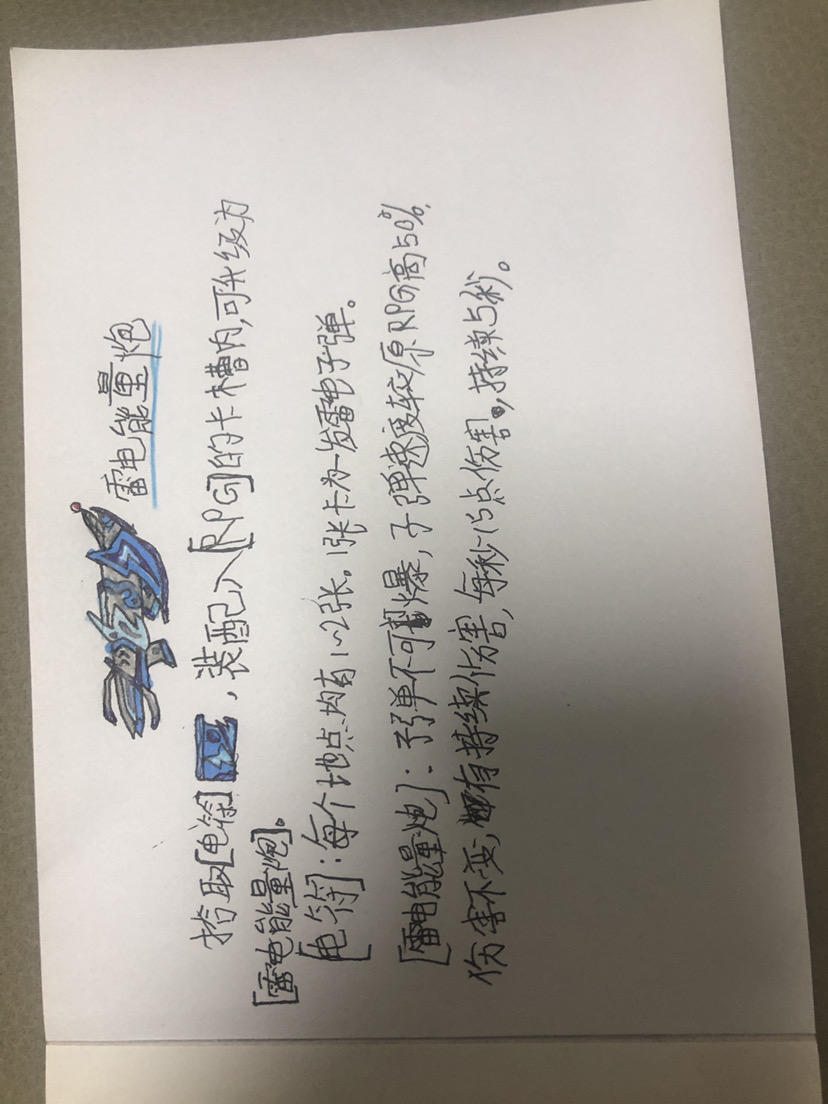 雷电能量炮
拾取[电符],装配入[RPG]的卡槽内,可升级为
[雷电能量炮]。
[电符]:每个地点均有1~2张。1张卡为一发雷电子弹。
[雷电能量炮]:子弹不可引爆,子弹速度较原RPG高50%,
伤害不变,都有持续伤害,每秒15点伤害,持续5秒。